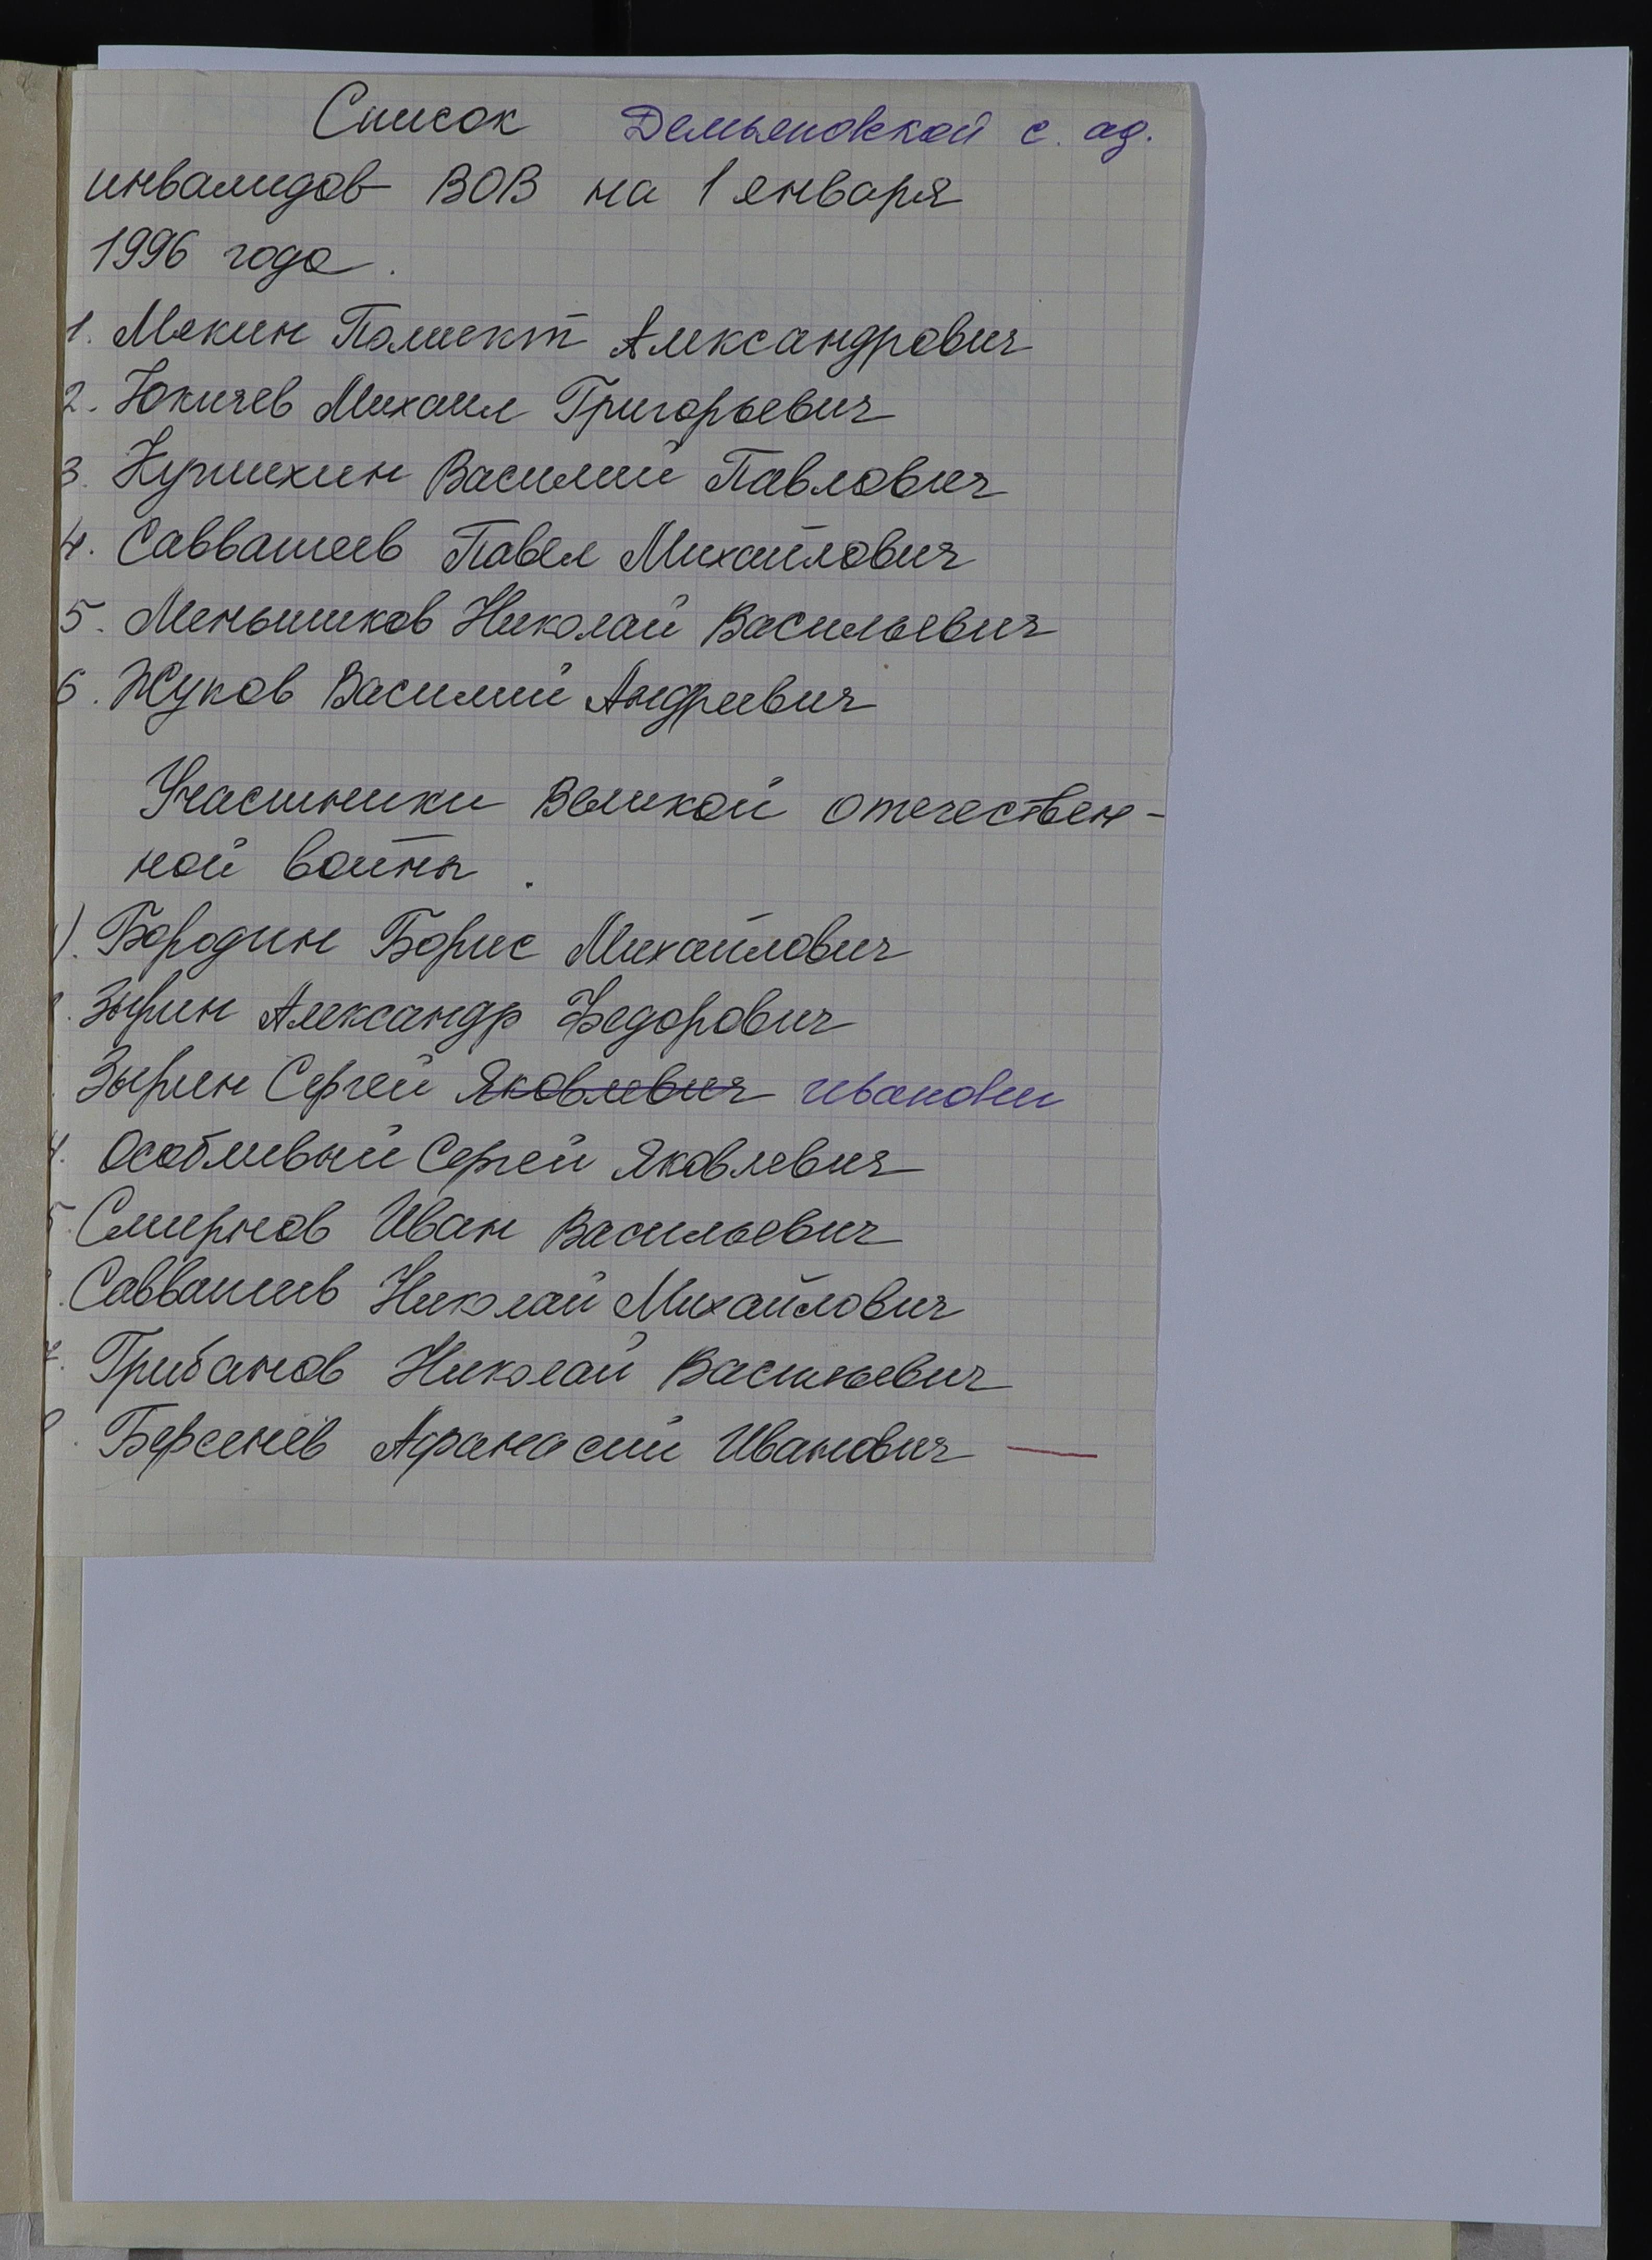 Список Демьяновской с. ад.
инвалидов ВОВ на 1 января
1996 года.
1. Мякин Полиект Александрович
2. Юкичев Михаил Григорьевич
3. Василий Павлович
4. Саввашеев Павел Михайлович
5. Меньшиков Николай Васильевич
6. Жуков Василий Андреевич
Участники Великой отечествен-
ной войны.
1). Бородин Борис Михайлович
Зырин Александр Федорович
Зырин Сергей Яковлевич Иванови
4. Особливый Сергей Яковлевич
5. Смирнов Иван Васильевич
Саввашеев Николай Михайлович
7. Грибанов Николай Васильевич
8. Берсенёв Афанасий Иванович —